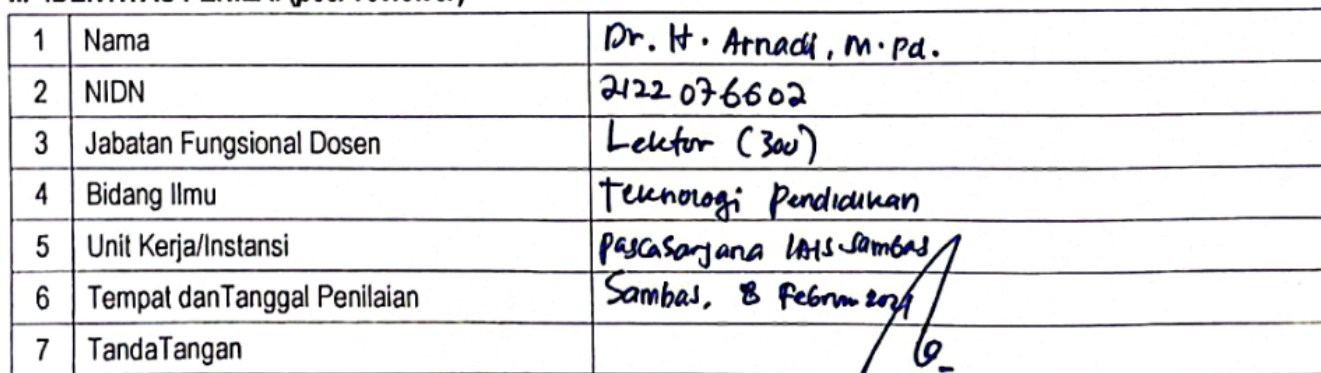 1 Nama Dr. H. Arnadi, M.Pd.
2 NIDN 2122 076602
3 Jabatan Fungsional Dosen Lektor (300)
4 Bidang Ilmu Teknologi Pendidikan
5 Unit Kerja/Instansi Pascasarjana IAIS Sambas
6 Tempat danTanggal Penilaian Sambas, 8
7 TandaTangan